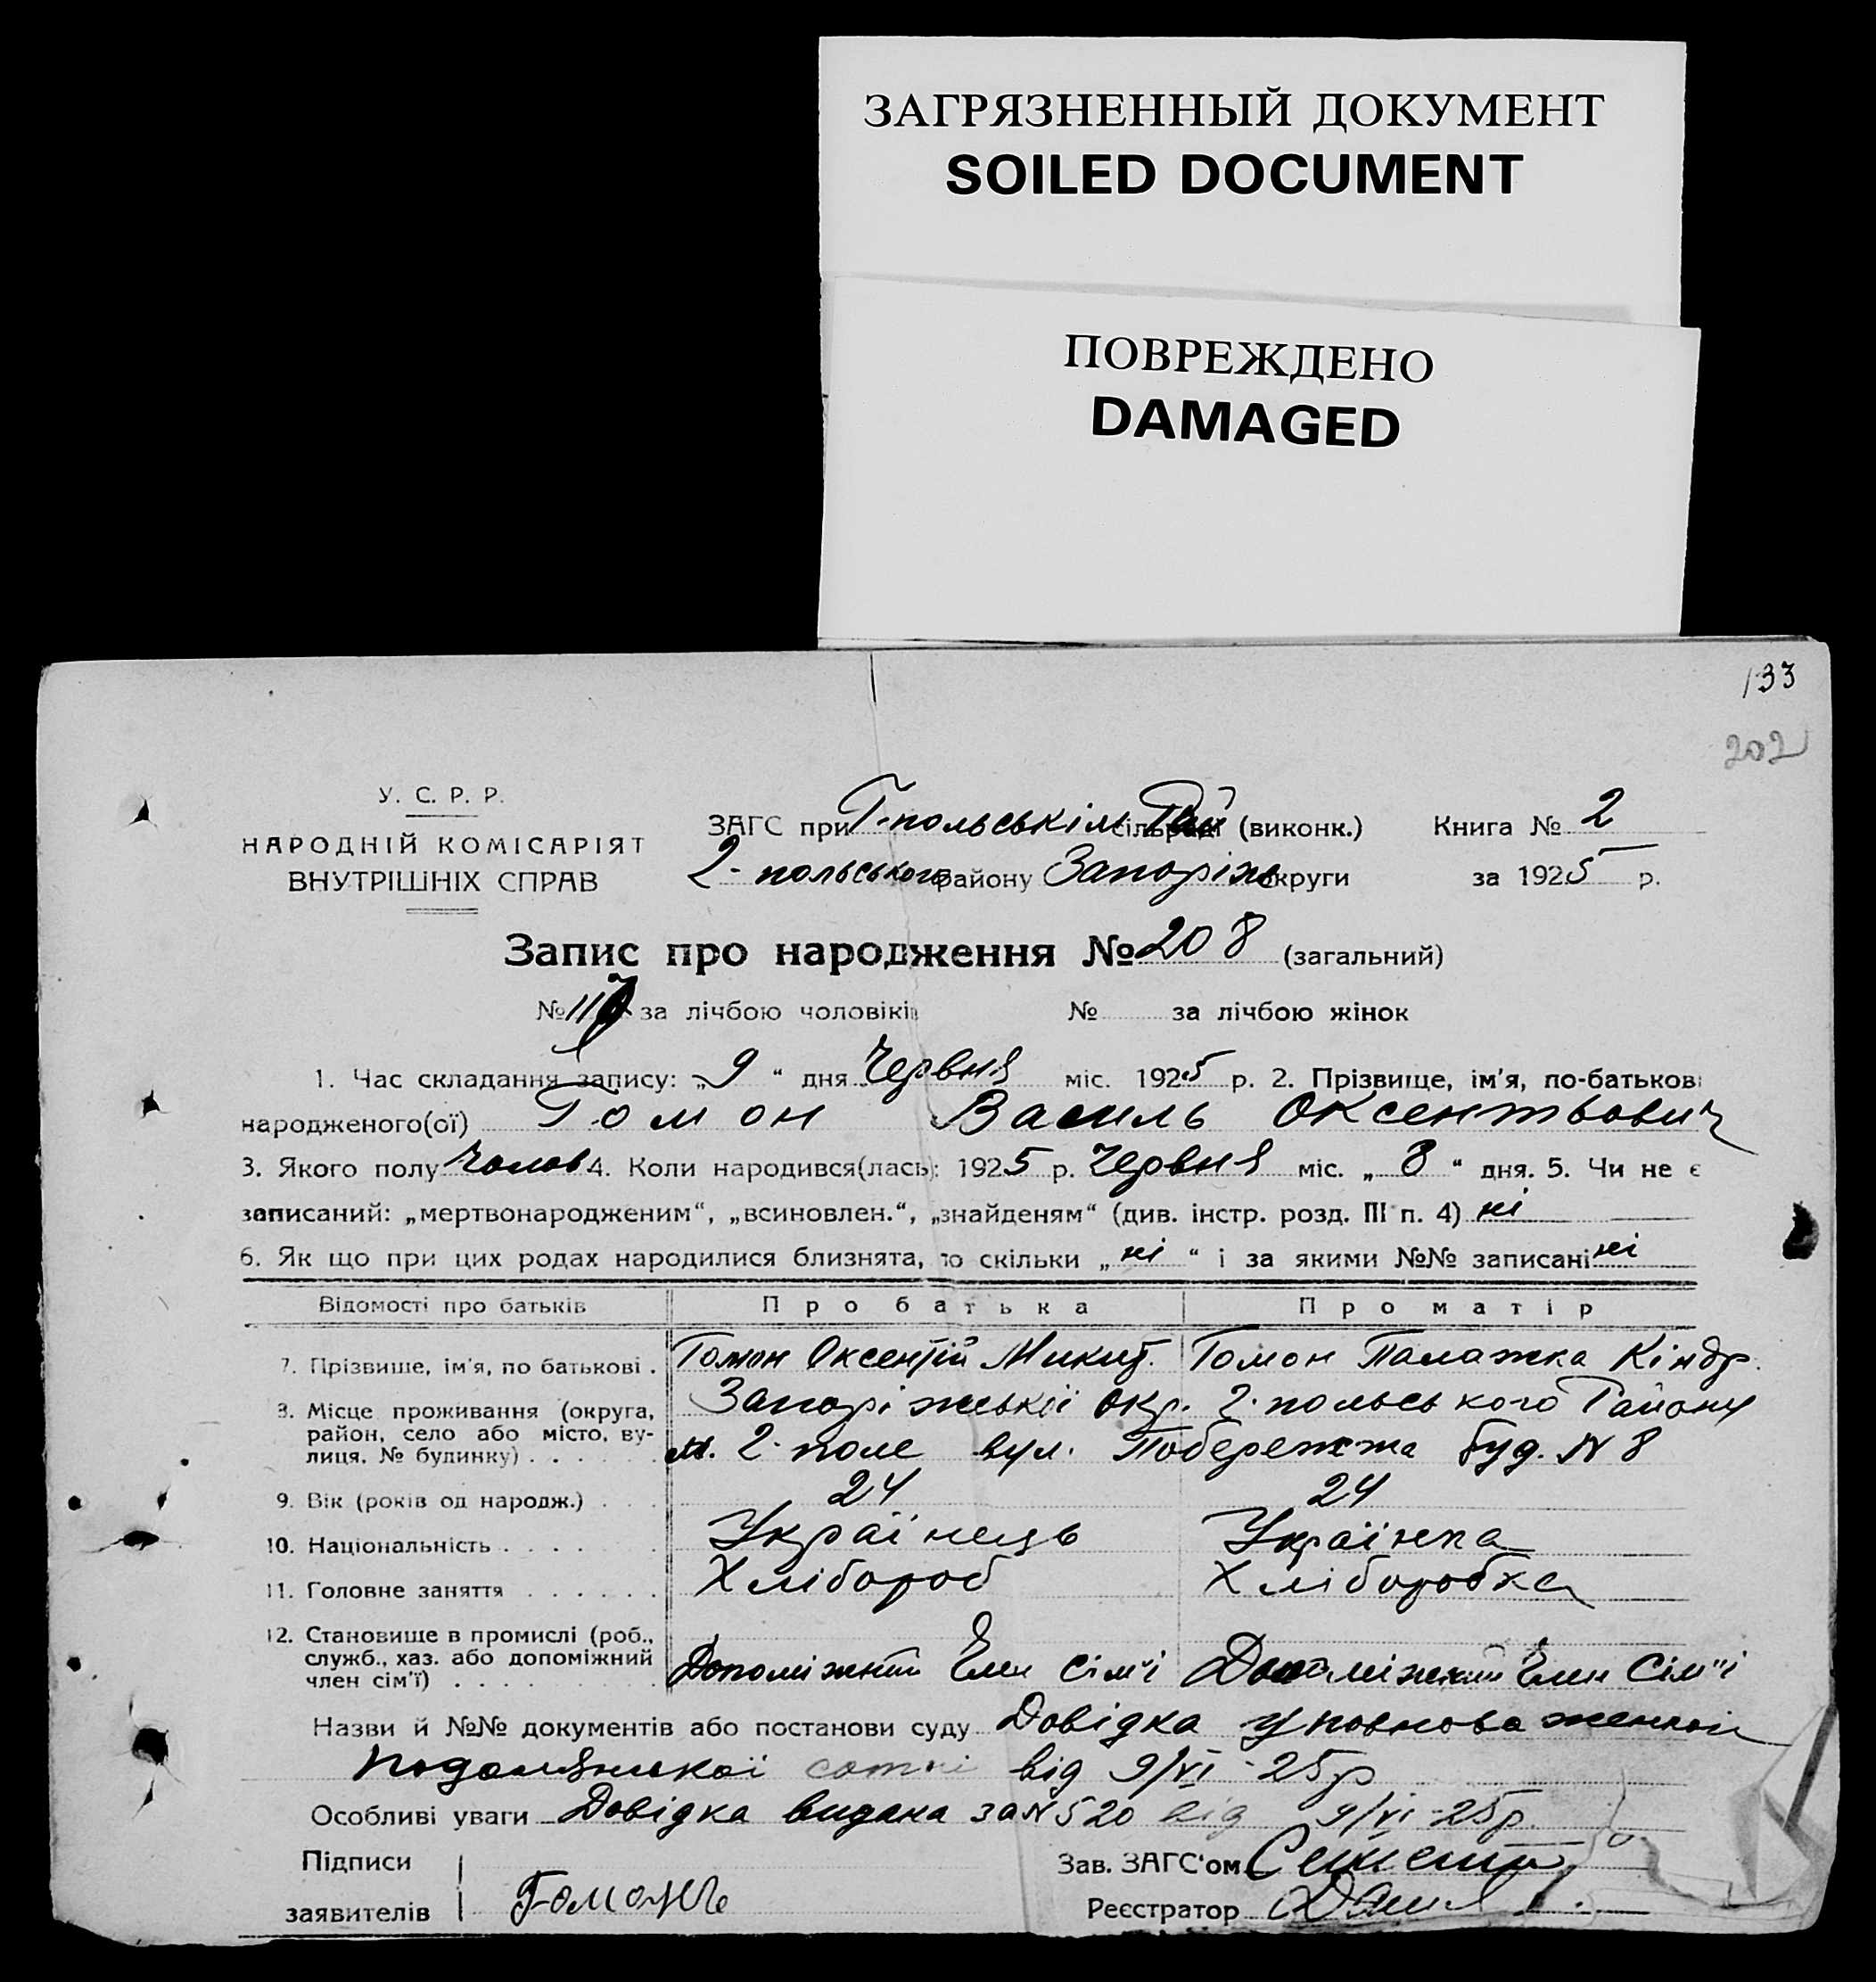 ЗАГРЯЗНЕННЫЙ ДОКУМЕНТ
SOILED DOCUMENT
ПОВРЕЖДЕНО
DAMAGED
133
202
У. С. Р. Р.
НАРОДНІЙ КОМІСАРІЯТ
ВНУТРІШНІХ СПРАВ
ЗАГС при Г-польськім сільраді (виконк.) Книга № 2
Г-польського району Запоріжь округи за 1925 р.
Запис про народження № 208 (загальний)
№ 117 за лічбою чоловіків № за лічбою жінок
1. Час складання запису: „9“ дня Червня міс. 1925 р. 2. Прізвище, ім'я, по-батькові
народженого(ої) Гомон Василь Оксентьович
3. Якого полу Чолов 4. Коли народився(лась): 1925 р. Червня міс. „8“ дня. 5. Чи не є
записаний: „мертвонародженим“, „всиновлен.“, „знайденям“ (див. інстр. розд. III п. 4) ні
6. Як що при цих родах народилися близнята, то скільки „ні“ і за якими №№ записані ні
Відомості про батьків Про батька Про матір
7. Прізвище, ім'я, по батькові . Гомон Оксентій Микит. Гомон Палажка Кіндр.
8. Місце проживання (округа, Запоріжської окр. Г-польського Району
район, село або місто, ву-
лиця, № будинку) . . . . . . м. Г-поле вул. Побережжа буд. N 8
9. Вік (років од народж.) . . . 24 24
10. Національність . . . . . . . Українець Українка
11. Головне заняття . . . . . . Хлібороб Хліборобка
12. Становище в промислі (роб.,
служб., хаз. або допоміжний Допоміжний Член Сім'ї Допоміжний Член Сім'ї
член сім'ї) . . . . . . . . .
Назви й №№ документів або постанови суду Довідка уповноваженной
Подолянської сотні від 9/VI-25р
Особливі уваги Довідка видана за N 520 від 9/VI-25р.
Підписи Зав. ЗАГС'ом
заявителів Гомонъ Реєстратор